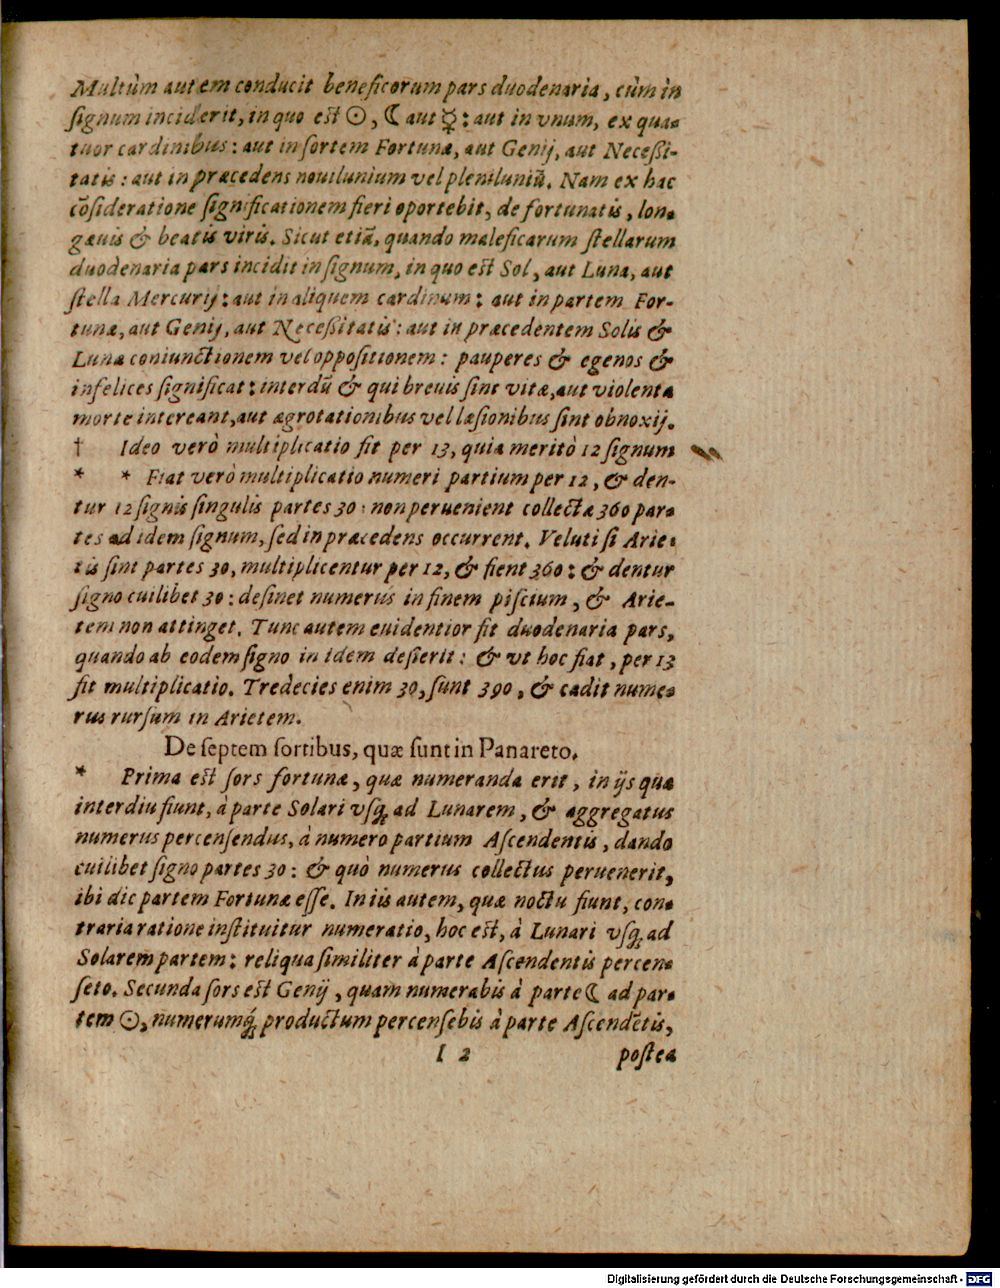 Multùm autem conducit beneficorum pars duodenaria, cùm in
ſignum inciderit, in quo eſt ☉, ☾ aut ☿: aut in vnum, ex qua-
tuor cardinibus: aut in ſortem Fortunæ, aut Genij, aut Neceßi-
tatis: aut in præcedens nouilunium vel pleniluniũ. Nam ex hac
cõſideratione ſignificationem fieri oportebit, de fortunatis, lon-
gæuis & beatis viris. Sicut etiã, quando maleficarum ſtellarum
duodenaria pars incidit in ſignum, in quo eſt Sol, aut Luna, aut
ſtella Mercurij: aut in aliquem cardinum: aut in partem For-
tunæ, aut Genij, aut Neceßitatis: aut in præcedentem Solis &
Lunæ coniunctionem vel oppoſitionem: pauperes & egenos &
infelices ſignificat: interdũ & qui breuis ſint vitæ, aut violenta
morte intereant, aut ægrotationibus vel læſionibus ſint obnoxij.
† Ideo verò multiplicatio fit per 13, quia meritò 12 ſignum
* * Fiat verò multiplicatio numeri partium per 12, & den-
tur 12 ſignis ſingulis partes 30: non peruenient collectæ 360 par-
tes ad idem ſignum, ſed in præcedens occurrent. Veluti ſi Arie-
tis ſint partes 30, multiplicentur per 12, & fient 360: & dentur
ſigno cuilibet 30: deſinet numerus in finem piſcium, & Arie-
tem non attinget. Tunc autem euidentior fit duodenaria pars,
quando ab eodem ſigno in idem deſierit: & vt hoc fiat, per 13
fit multiplicatio. Tredecies enim 30, ſunt 390, & cadit nume-
rus rurſum in Arietem.
De ſeptem ſortibus, quæ ſunt in Panareto.
* Prima eſt ſors fortunæ, quæ numeranda erit, in ijs quæ
interdiu fiunt, à parte Solari vſq; ad Lunarem, & aggregatus
numerus percenſendus, à numero partium Aſcendentis, dando
cuilibet ſigno partes 30: & quò numerus collectus peruenerit,
ibi dic partem Fortunæ eſſe. In iis autem, quæ noctu fiunt, con-
traria ratione inſtituitur numeratio, hoc eſt, à Lunari vſq; ad
Solarem partem: reliqua ſimiliter à parte Aſcendentis percen-
ſeto. Secunda ſors eſt Genij, quam numerabis à parte ☾ ad par-
tem ☉, numerumq́; productum percenſebis à parte Aſcendẽtis,
I 2 poſtea
Digitalisierung gefördert durch die Deutsche Forschungsgemeinschaft - DFG